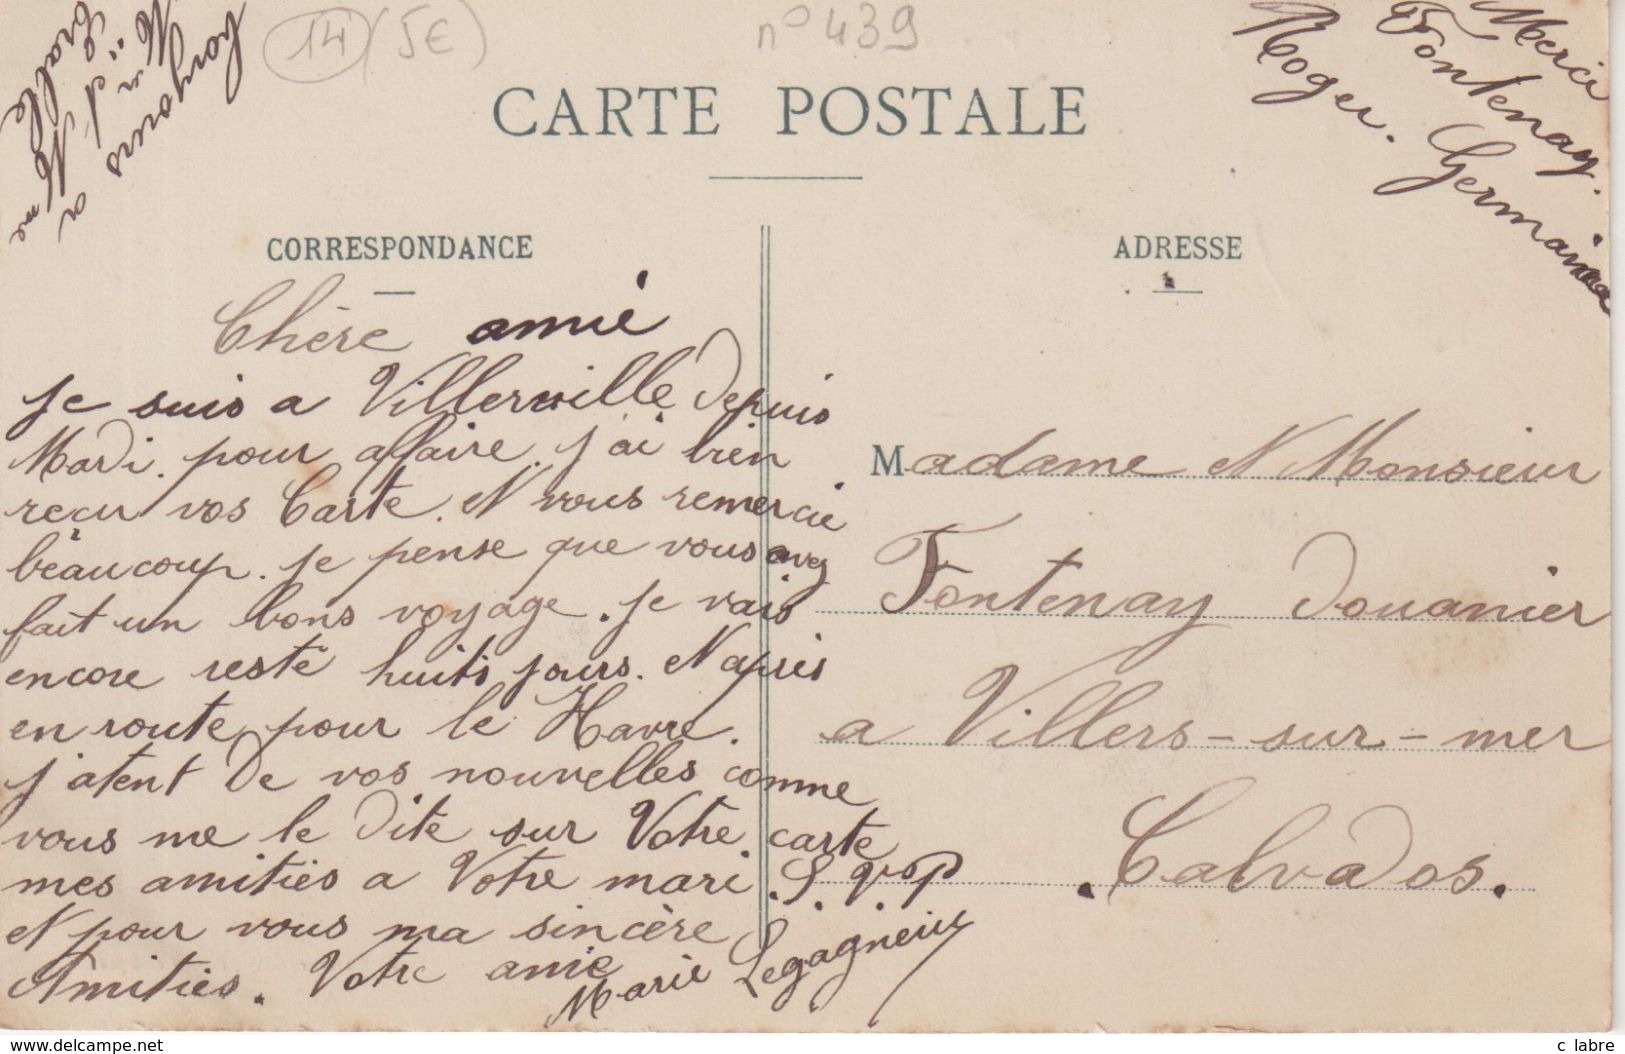 14 (5€)
n° 439
CARTE POSTALE
Merci
Fontenay.
Roger. Germaine
bonjours
a
Mme
CORRESPONDANCE
ADRESSE
Chère amie
je suis a Villerville depuis
Mardi. pour affaire. j'ai bien
reçu vos Carte. et vous remercie
beaucoup. je pense que vous avez
fait un bons voyage. je vais
encore resté huits jours. et après
en route pour le Havre.
j'atent de vos nouvelles comme
vous me le dite sur Votre carte
mes amitiés a Votre mari. S.V.P
et pour vous ma sincère
Amitiés. Votre amie
Marie Legagneux
Madame et Monsieur
Fontenay douanier
a Villers-sur-mer
Calvados.
www.delcampe.net
c labre